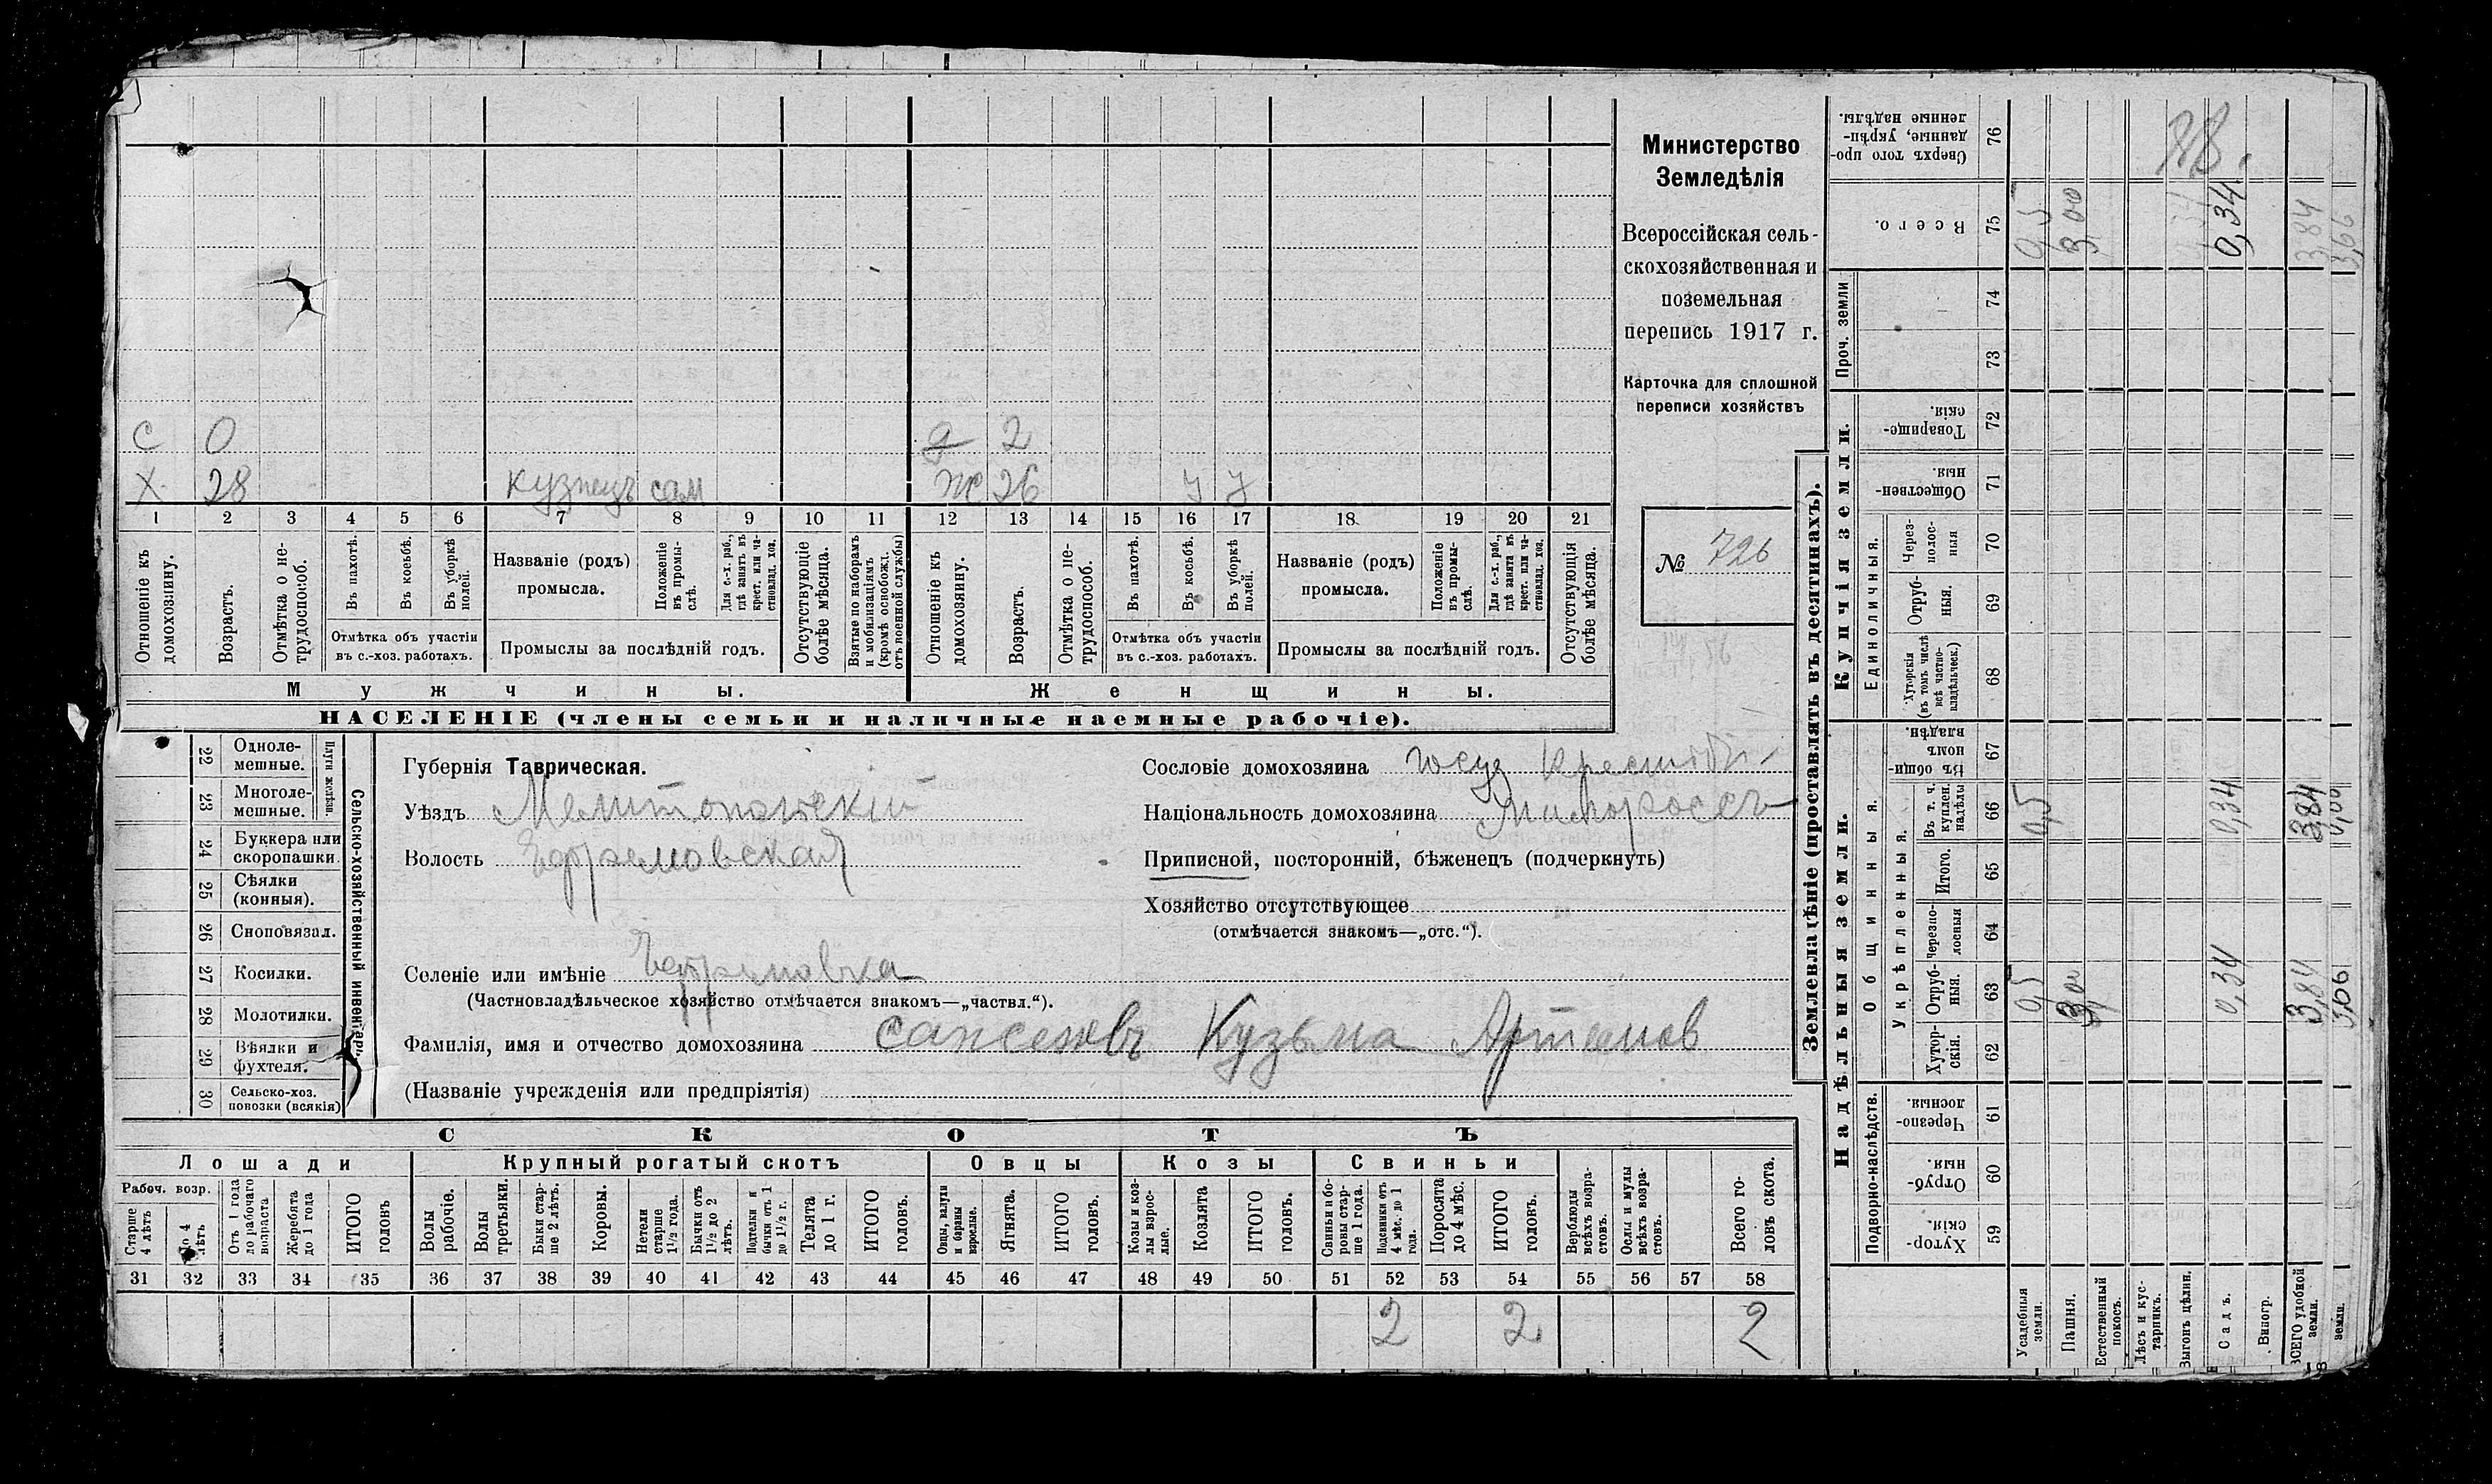 С 0 д 2
Х 28 кузнецъ сам ж 26 у у
1 2 3 4 5 6 7 8 9 10 11 12 13 14 15 16 17 18 19 20 21
Отношеніе къ домохозяину.
Возрастъ.
Отмѣтка о не-трудоспособ.
Въ пахотѣ.
Въ косьбѣ.
Въ уборкѣ полей.
Отмѣтка объ участіи
въ с.-хоз. работахъ.
Названіе (родъ)
промысла.
Положеніе въ промы-слѣ.
Для с.-х. раб., гдѣ занятъ въ крест. или ча-стновлад. хоз.
Промыслы за послѣдній годъ.
Отсутствующіе болѣе мѣсяца.
Взятые по наборамъ и мобилизаціямъ (кромѣ освобожд. отъ военной службы)
Отношеніе къ домохозяину.
Возрастъ.
Отмѣтка о не-трудоспособ.
Въ пахотѣ.
Въ косьбѣ.
Въ уборкѣ полей.
Отмѣтка объ участіи
въ с.-хоз. работахъ.
Названіе (родъ)
промысла.
Положеніе въ промы-слѣ.
Для с.-х. раб., гдѣ занята въ крест. или ча-стновлад. хоз.
Промыслы за послѣдній годъ.
Отсутствующія болѣе мѣсяца.
Мужчины. Женщины.
НАСЕЛЕНІЕ (члены семьи и наличные наемные рабочіе).
Министерство
Земледѣлія
Всероссійская сель-
скохозяйственная и
поземельная
перепись 1917 г.
Карточка для сплошной
переписи хозяйствъ
№ 726
Сельско-хозяйственный инвентарь.
Плуги желѣзн.
22 Одноле-мешные.
23 Многоле-мешные.
24 Буккера или скоропашки.
25 Сѣялки (конныя).
26 Сноповязал.
27 Косилки.
28 Молотилки.
29 Вѣялки и фухтеля.
30 Сельско-хоз. повозки (всякія)
Губернія Таврическая.
Уѣздъ Мелитопольскій
Волость Ефремовская
Селеніе или имѣніе Ефремовка
(Частновладѣльческое хозяйство отмѣчается знакомъ—„частвл.“).
Фамилія, имя и отчество домохозяина Кузьма Артемов
(Названіе учрежденія или предпріятія)
Сословіе домохозяина госуд крестьян
Національность домохозяина Малороссъ
Приписной, посторонній, бѣженецъ (подчеркнуть)
Хозяйство отсутствующее
(отмѣчается знакомъ—„отс.“).
СКОТЪ
Лошади Крупный рогатый скотъ Овцы Козы Свиньи
Рабоч. возр.
Старше 4 лѣтъ
До 4 лѣтъ
Отъ 1 года до рабочаго возраста
Жеребята до 1 года
ИТОГО головъ
Волы рабочіе.
Волы третьяки.
Быки стар-ше 2 лѣтъ.
Коровы.
Нетели старше 1½ года.
Бычки отъ 1½ до 2 лѣтъ.
Подтелки и бычки отъ 1 до 1½ г.
Телята до 1 г.
ИТОГО головъ.
Овцы, валухи и бараны взрослые.
Ягнята.
ИТОГО головъ.
Козы и коз-лы взрос-лые.
Козлята
ИТОГО головъ.
Свиньи и бо-ровы стар-ше 1 года.
Подсвинки отъ 4 мѣс. до 1 года.
Поросята до 4 мѣс.
ИТОГО головъ.
Верблюды всѣхъ возра-стовъ.
Ослы и мулы всѣхъ возра-стовъ.
Всего го-ловъ скота.
31 32 33 34 35 36 37 38 39 40 41 42 43 44 45 46 47 48 49 50 51 52 53 54 55 56 57 58
2 2 2
Землевладѣніе (проставлять въ десятинахъ).
Надѣльныя земли. Купчія земли. Проч. земли
Подворно-наслѣдств. Общинныя. Укрѣпленныя. Единоличныя.
59 Хутор-скія.
60 Отруб-ныя.
61 Черезпо-лосныя.
62 Хутор-скія.
63 Отруб-ныя.
64 Черезпо-лосныя
65 Итого.
66 Въ т. ч. куплен. надѣлы
67 Въ общи-номъ владѣн.
68 Хуторскія (въ томъ числѣ всѣ частно-владѣльческ.)
69 Отруб-ныя.
70 Через-полос-ныя
71 Обществен-ныя.
72 Товарище-скія.
73
74
75 Всего.
76 Сверхъ того про-данные, укрѣп-ленные надѣлы.
Усадебныя земли. 0,5 0,5 0,5
Пашня. 3,00 3,00
Естественный покосъ.
Лѣсъ и кус-тарникъ.
Выгонъ цѣлин.
Садъ. 0,34 0,34 0,34
Виногр.
ВСЕГО удобной земли. 3,84 3,84 3,84
земли.